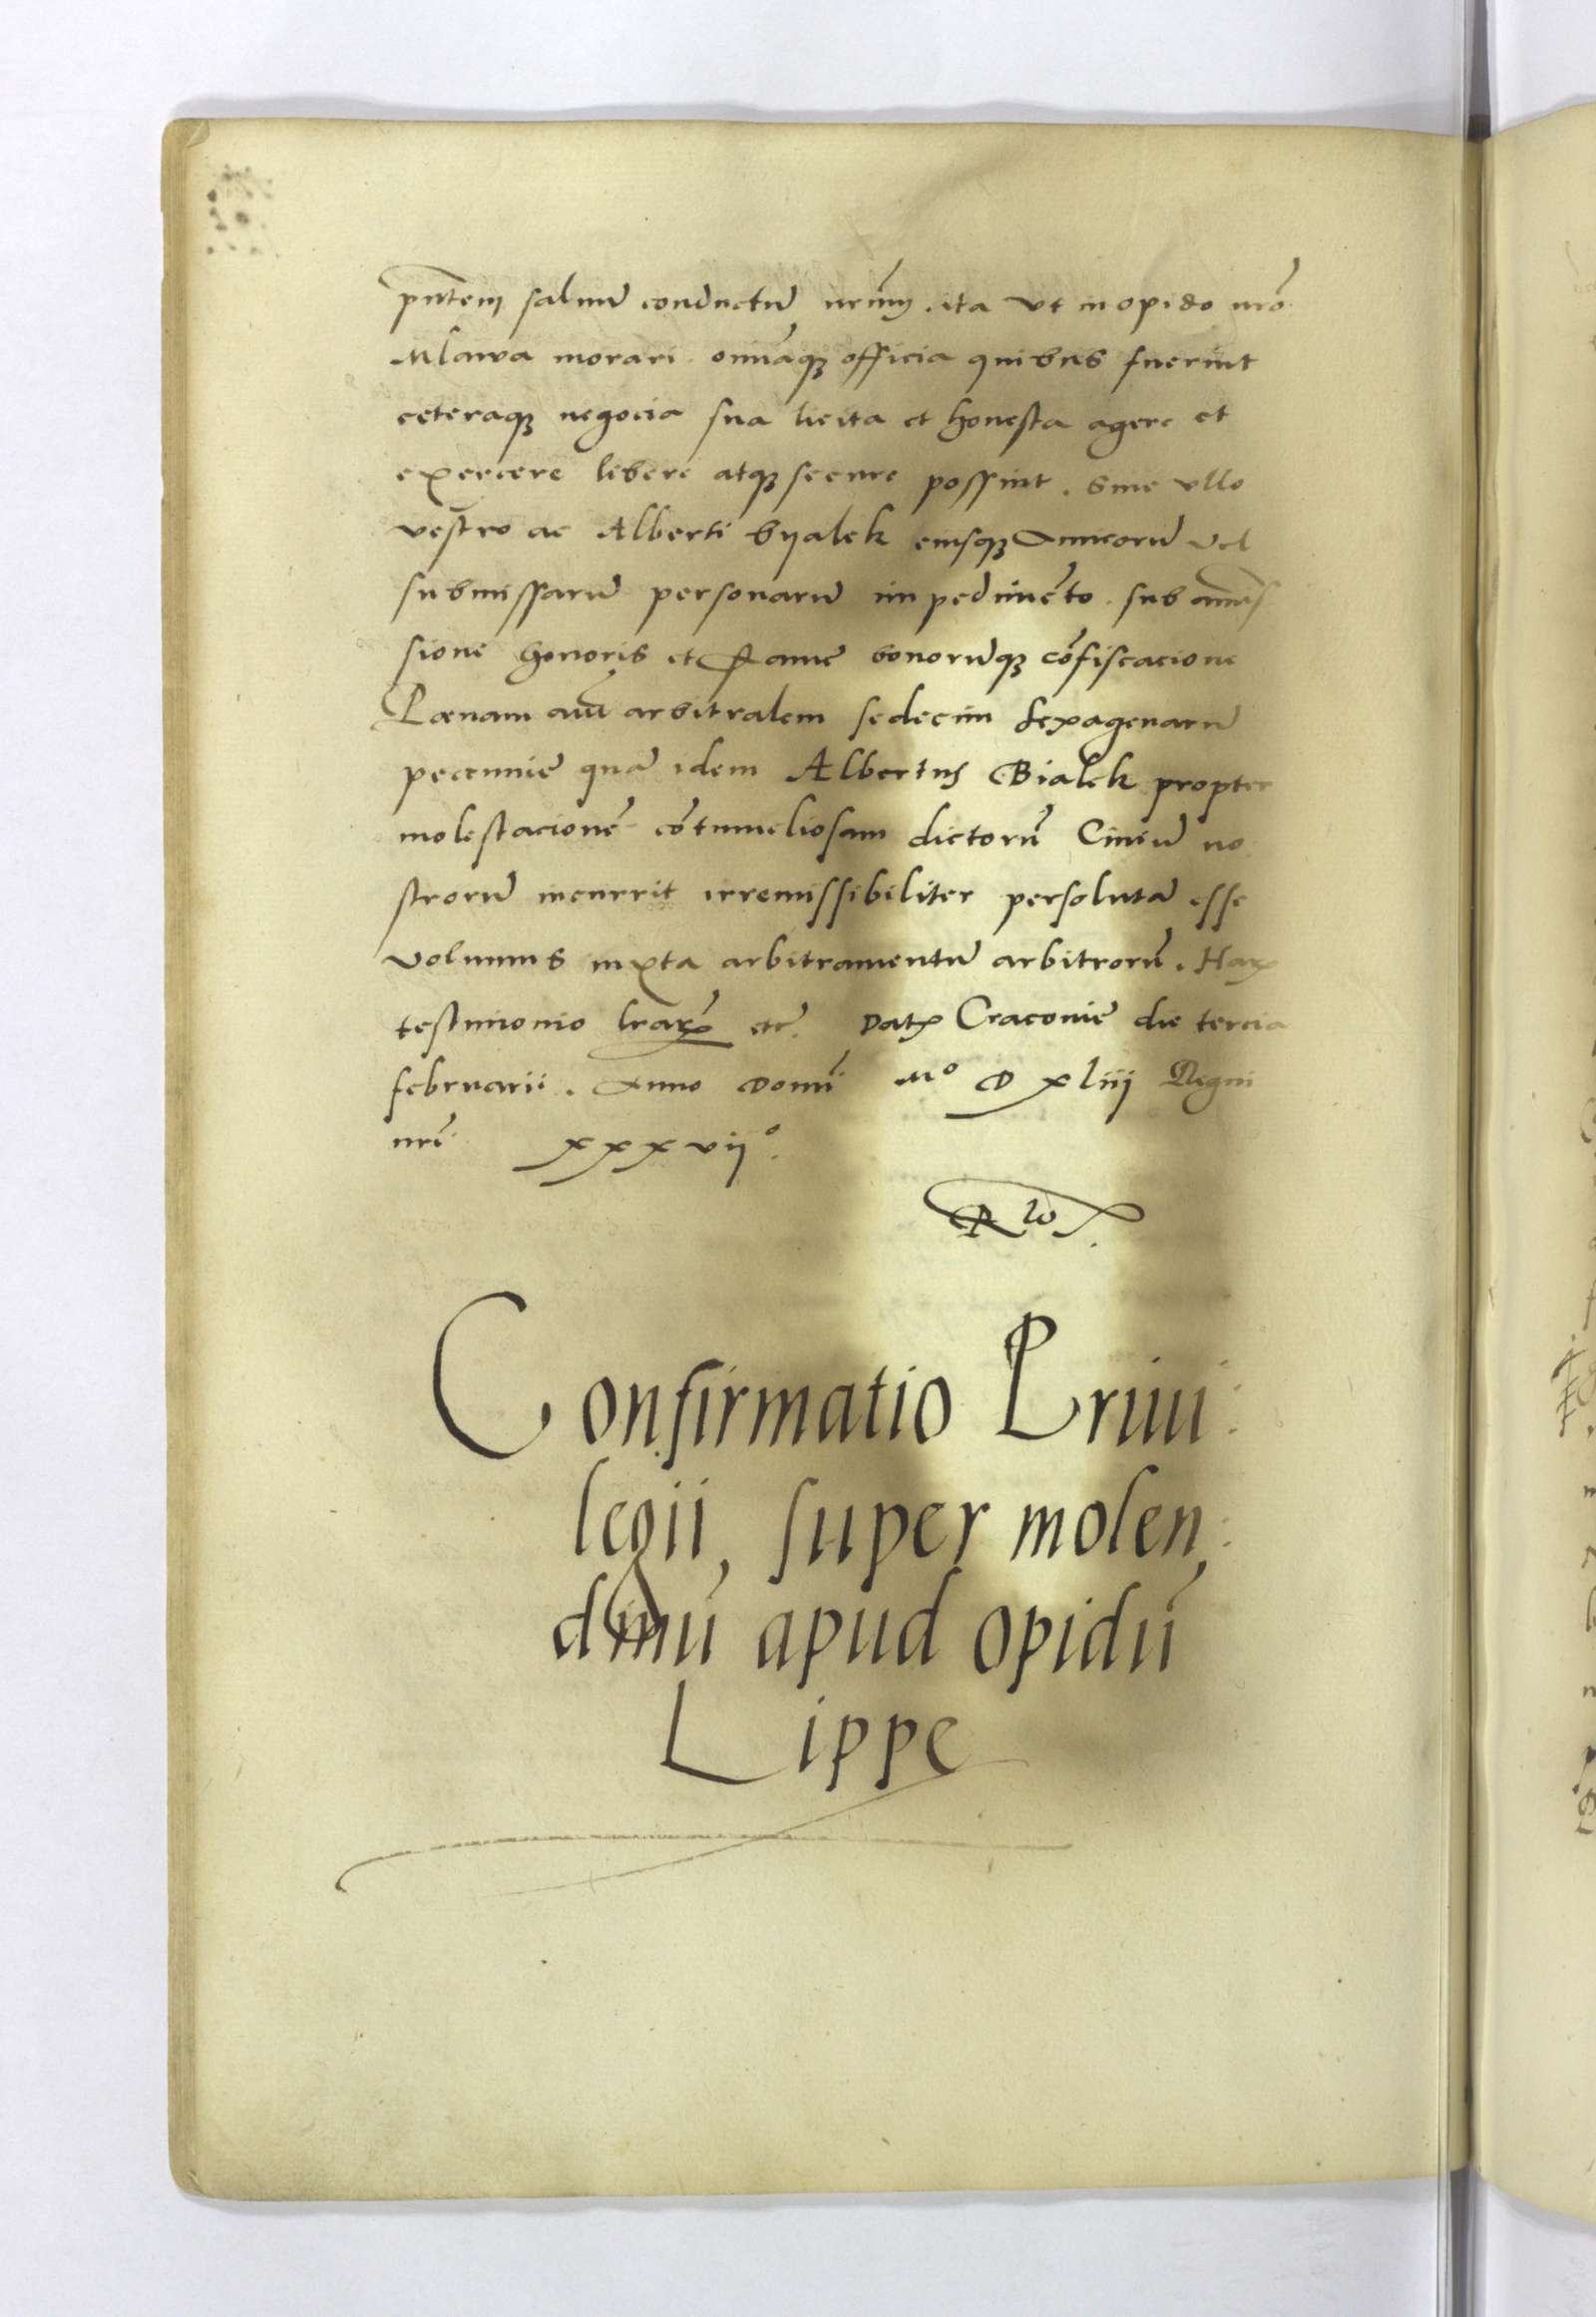 pn̄tem saluū conductū nr̄um, ita vt in opido nr̄o
Mlawa morari omniaq̨ officia quibus fuerint
ceteraq̨ negocia sua licita et honesta agere et
exercere libere atq̨ secure possint. Sine vllo
vestro ac Alberti byalek eiusq̨ Amicorū vel
submissarū personarū impedimēto. sub amis
sione honoris et Fame bonorūq̨ cōfiscacione
Pœnam aūt arbitralem sedecim sexagenarū
pecunie quā idem Albertus Bialek propter
molestacionē cōtumeliosam dictorū Ciuiū no
strorū incurrit irremissibiliter persolutā esse
volumus iuxta arbitramentū arbitrorū. Harꝝ
testimonio lr̄arꝝ etc̄. Datꝝ Cracouie die tercia
februarii. Anno Domī Mº D xliiij Regni
nr̄i xxxvijº.
Confirmatio Priui:
legii, super molen,:
dinū apud opidū
Lippe